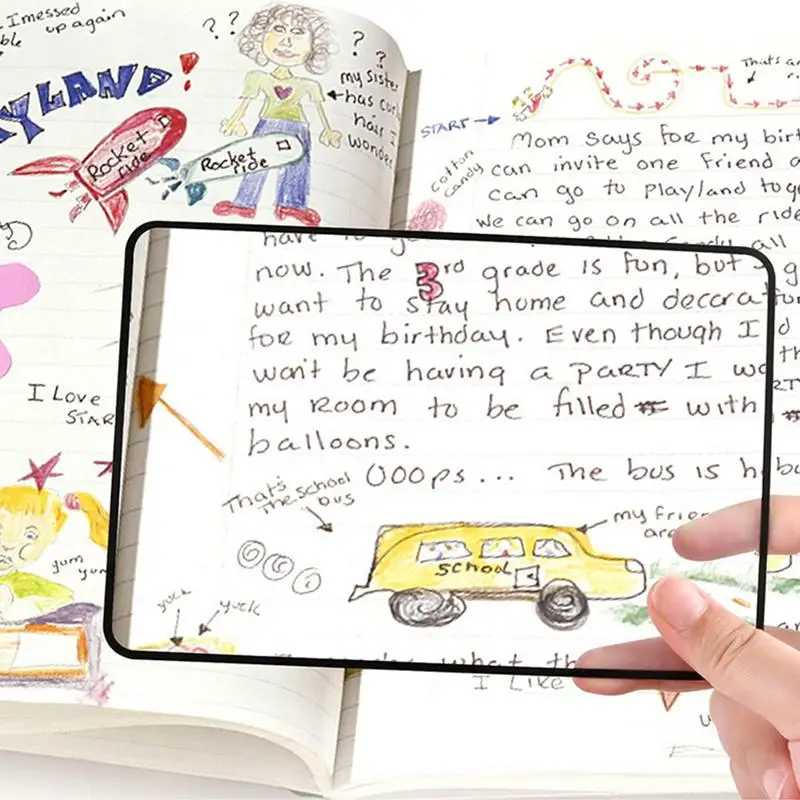 I messed
up again
YLAND!
Rocket
ride
Rocket
ride
? ?
? ?
my sister
has
hair I
wonder
I Love
STAR
yum
START
cotton
candy
That's
Mom says for my
can invite one friend
can go to Playland
we can go on all the
all
now. The 3rd grade is fun, but
want to stay home and
for my birthday. Even though I
won't be having a PARTY I
my Room to be filled with
balloons.
OOOps... The bus is
That's
the school
bus
my
SCHOOL
yuck
yuck
what
I Like